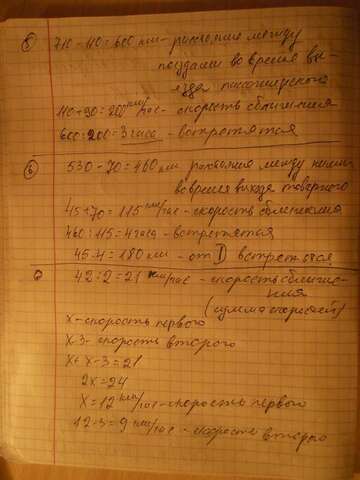 ⑤ 710-110=600 км - расстояние между
поездами во время вы
езда пассажирского
110+90=200 км/час - скорость сближения
600:200=3 часа - встретятся
⑥ 530-70=460 км расстояние между ними
во время выхода товарного
45+70=115 км/час - скорость сближения
460:115=4 часа - встретятся
45·4=180 км - от I встретятся
42:2=21 км/час - скорость сближе-
ния
(сумма скоростей)
x - скорость первого
x-3 - скорость второго
x+x-3=21
2x=24
x=12 км/час - скорость первого
12-3=9 км/час - скорость второго